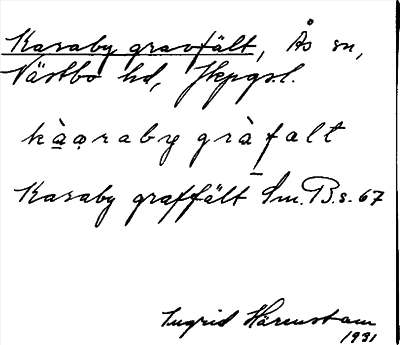 Karaby gravfält, Ås sn,
Västbo hd, Jkpgs.l.
kà̱ạraby grà̱falt
Karaby graffält Sm. B.s. 67
Ingrid Härenstam
1931